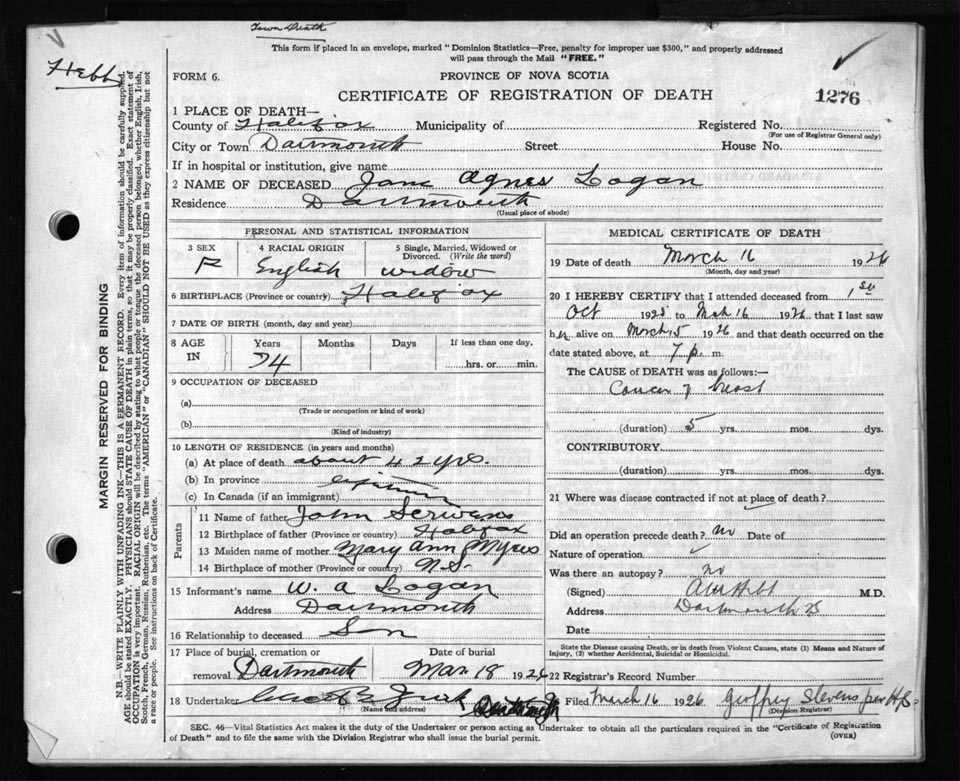 Town Death
This form if placed in an envelope, marked "Dominion Statistics—Free, penalty for improper use $300," and properly addressed
will pass through the Mail "FREE."
Hebb
FORM 6.
PROVINCE OF NOVA SCOTIA
CERTIFICATE OF REGISTRATION OF DEATH
1276
MARGIN RESERVED FOR BINDING
N.B.—WRITE PLAINLY WITH UNFADING INK—THIS IS A PERMANENT RECORD. Every item of information should be carefully supplied.
AGE should be stated EXACTLY. PHYSICIANS should STATE CAUSE OF DEATH in plain terms, so that it may be properly classified. Exact statement of
OCCUPATION is very important. RACIAL ORIGIN will be described by stating to what people or tongue the deceased person belonged, whether English, Irish,
Scotch, French, German, Russian, Ruthenian, etc. The terms "AMERICAN" or "CANADIAN" SHOULD NOT BE USED as they express citizenship but not
a race or people. See instructions on back of Certificate.
1 PLACE OF DEATH—
County of Halifax Municipality of Registered No.
(For use of Registrar General only)
City or Town Dartmouth Street House No.
If in hospital or institution, give name
2 NAME OF DECEASED Jane Agnes Logan
Residence Dartmouth
(Usual place of abode)
PERSONAL AND STATISTICAL INFORMATION
3 SEX F
4 RACIAL ORIGIN English
5 Single, Married, Widowed or
Divorced. (Write the word)
widow
6 BIRTHPLACE (Province or country) Halifax
7 DATE OF BIRTH (month, day and year)
8 AGE
IN
Years Months Days If less than one day,
74 hrs. or min.
9 OCCUPATION OF DECEASED
(a)
(Trade or occupation or kind of work)
(b)
(Kind of industry)
10 LENGTH OF RESIDENCE (in years and months)
(a) At place of death about 42 yrs.
(b) In province
(c) In Canada (if an immigrant)
Parents
11 Name of father John Scrivens
12 Birthplace of father (Province or country) Halifax
13 Maiden name of mother Mary Ann Myers
14 Birthplace of mother (Province or country) N.S.
15 Informant's name W. A Logan
Address Dartmouth
16 Relationship to deceased Son
17 Place of burial, cremation or
removal Dartmouth
Date of burial
Mar 18 1926
18 Undertaker
(Name and address)
MEDICAL CERTIFICATE OF DEATH
19 Date of death March 16 1926
(Month, day and year)
20 I HEREBY CERTIFY that I attended deceased from 1st
Oct 1925 to Mch 16 1926 that I last saw
her alive on March 15 1926 and that death occurred on the
date stated above, at 7 p. m.
The CAUSE of DEATH was as follows:—
Cancer of breast
(duration) 5 yrs. mos. dys.
CONTRIBUTORY.
(duration) yrs. mos. dys.
21 Where was disease contracted if not at place of death?
Did an operation precede death? no Date of
Nature of operation
Was there an autopsy? no
(Signed) Hebb M.D.
Address Dartmouth NS
Date
State the Disease causing Death, or in death from Violent Causes, state (1) Means and Nature of
Injury, (2) whether Accidental, Suicidal or Homicidal.
22 Registrar's Record Number
Filed March 16 1926 Geoffrey Stevens per H.S.
(Division Registrar)
SEC. 46—Vital Statistics Act makes it the duty of the Undertaker or person acting as Undertaker to obtain all the particulars required in the "Certificate of Registration
of Death" and to file the same with the Division Registrar who shall issue the burial permit.
(OVER)